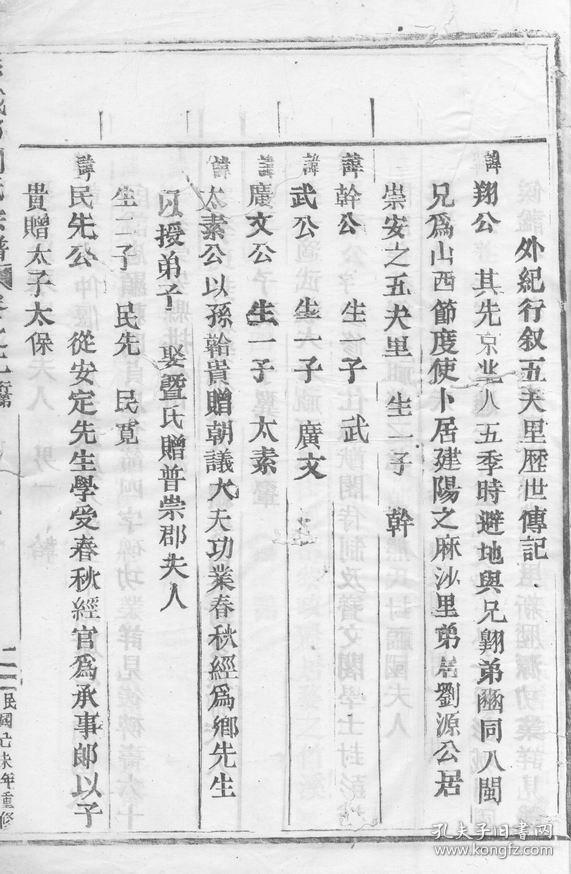 外紀行叙五夫里歷世傳記
諱翔公 其先京兆人五季時避地與兄翺弟豳同入閩
兄爲山西節度使卜居建陽之麻沙里弟居劉源公居
崇安之五夫里 生一子 幹
諱幹公 生一子 武
諱武公 生一子 廣文
諱廣文公 生一子 太素
諱太素公以孫韐貴贈朝議大夫功業春秋經爲鄉先生
以授弟子 娶暨氏贈普崇郡夫人
生二子 民先 民寛
諱民先公 從安定先生學受春秋經官爲承事郎以子
貴贈太子太保
二
民國己未年重修
孔夫子旧书网
kongfz.com